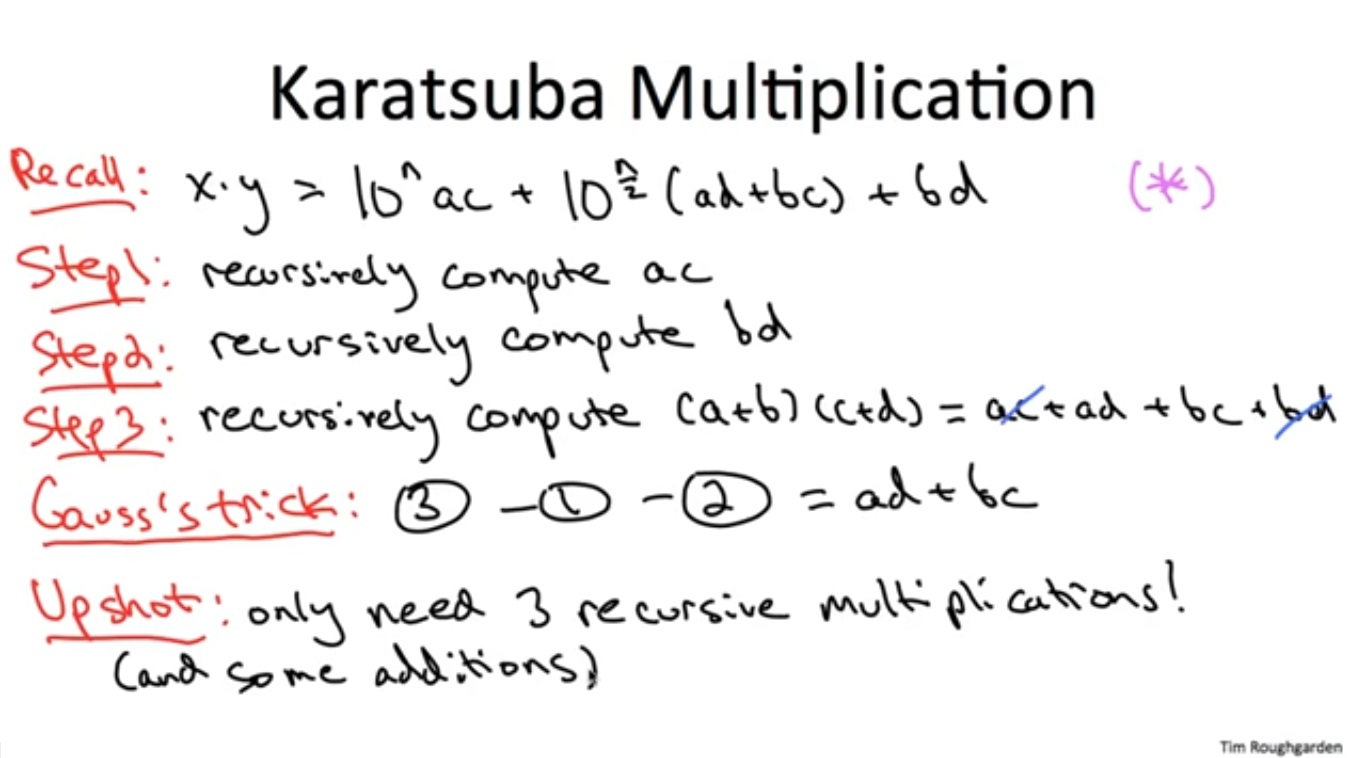 Karatsuba Multiplication
Recall: x·y = 10^n ac + 10^(n/2) (ad+bc) + bd (*)
Step1: recursively compute ac
Step2: recursively compute bd
Step3: recursively compute (a+b)(c+d) = ac+ad+bc+bd
Gauss's trick: ③ - ① - ② = ad+bc
Upshot: only need 3 recursive multiplications!
(and some additions)
Tim Roughgarden